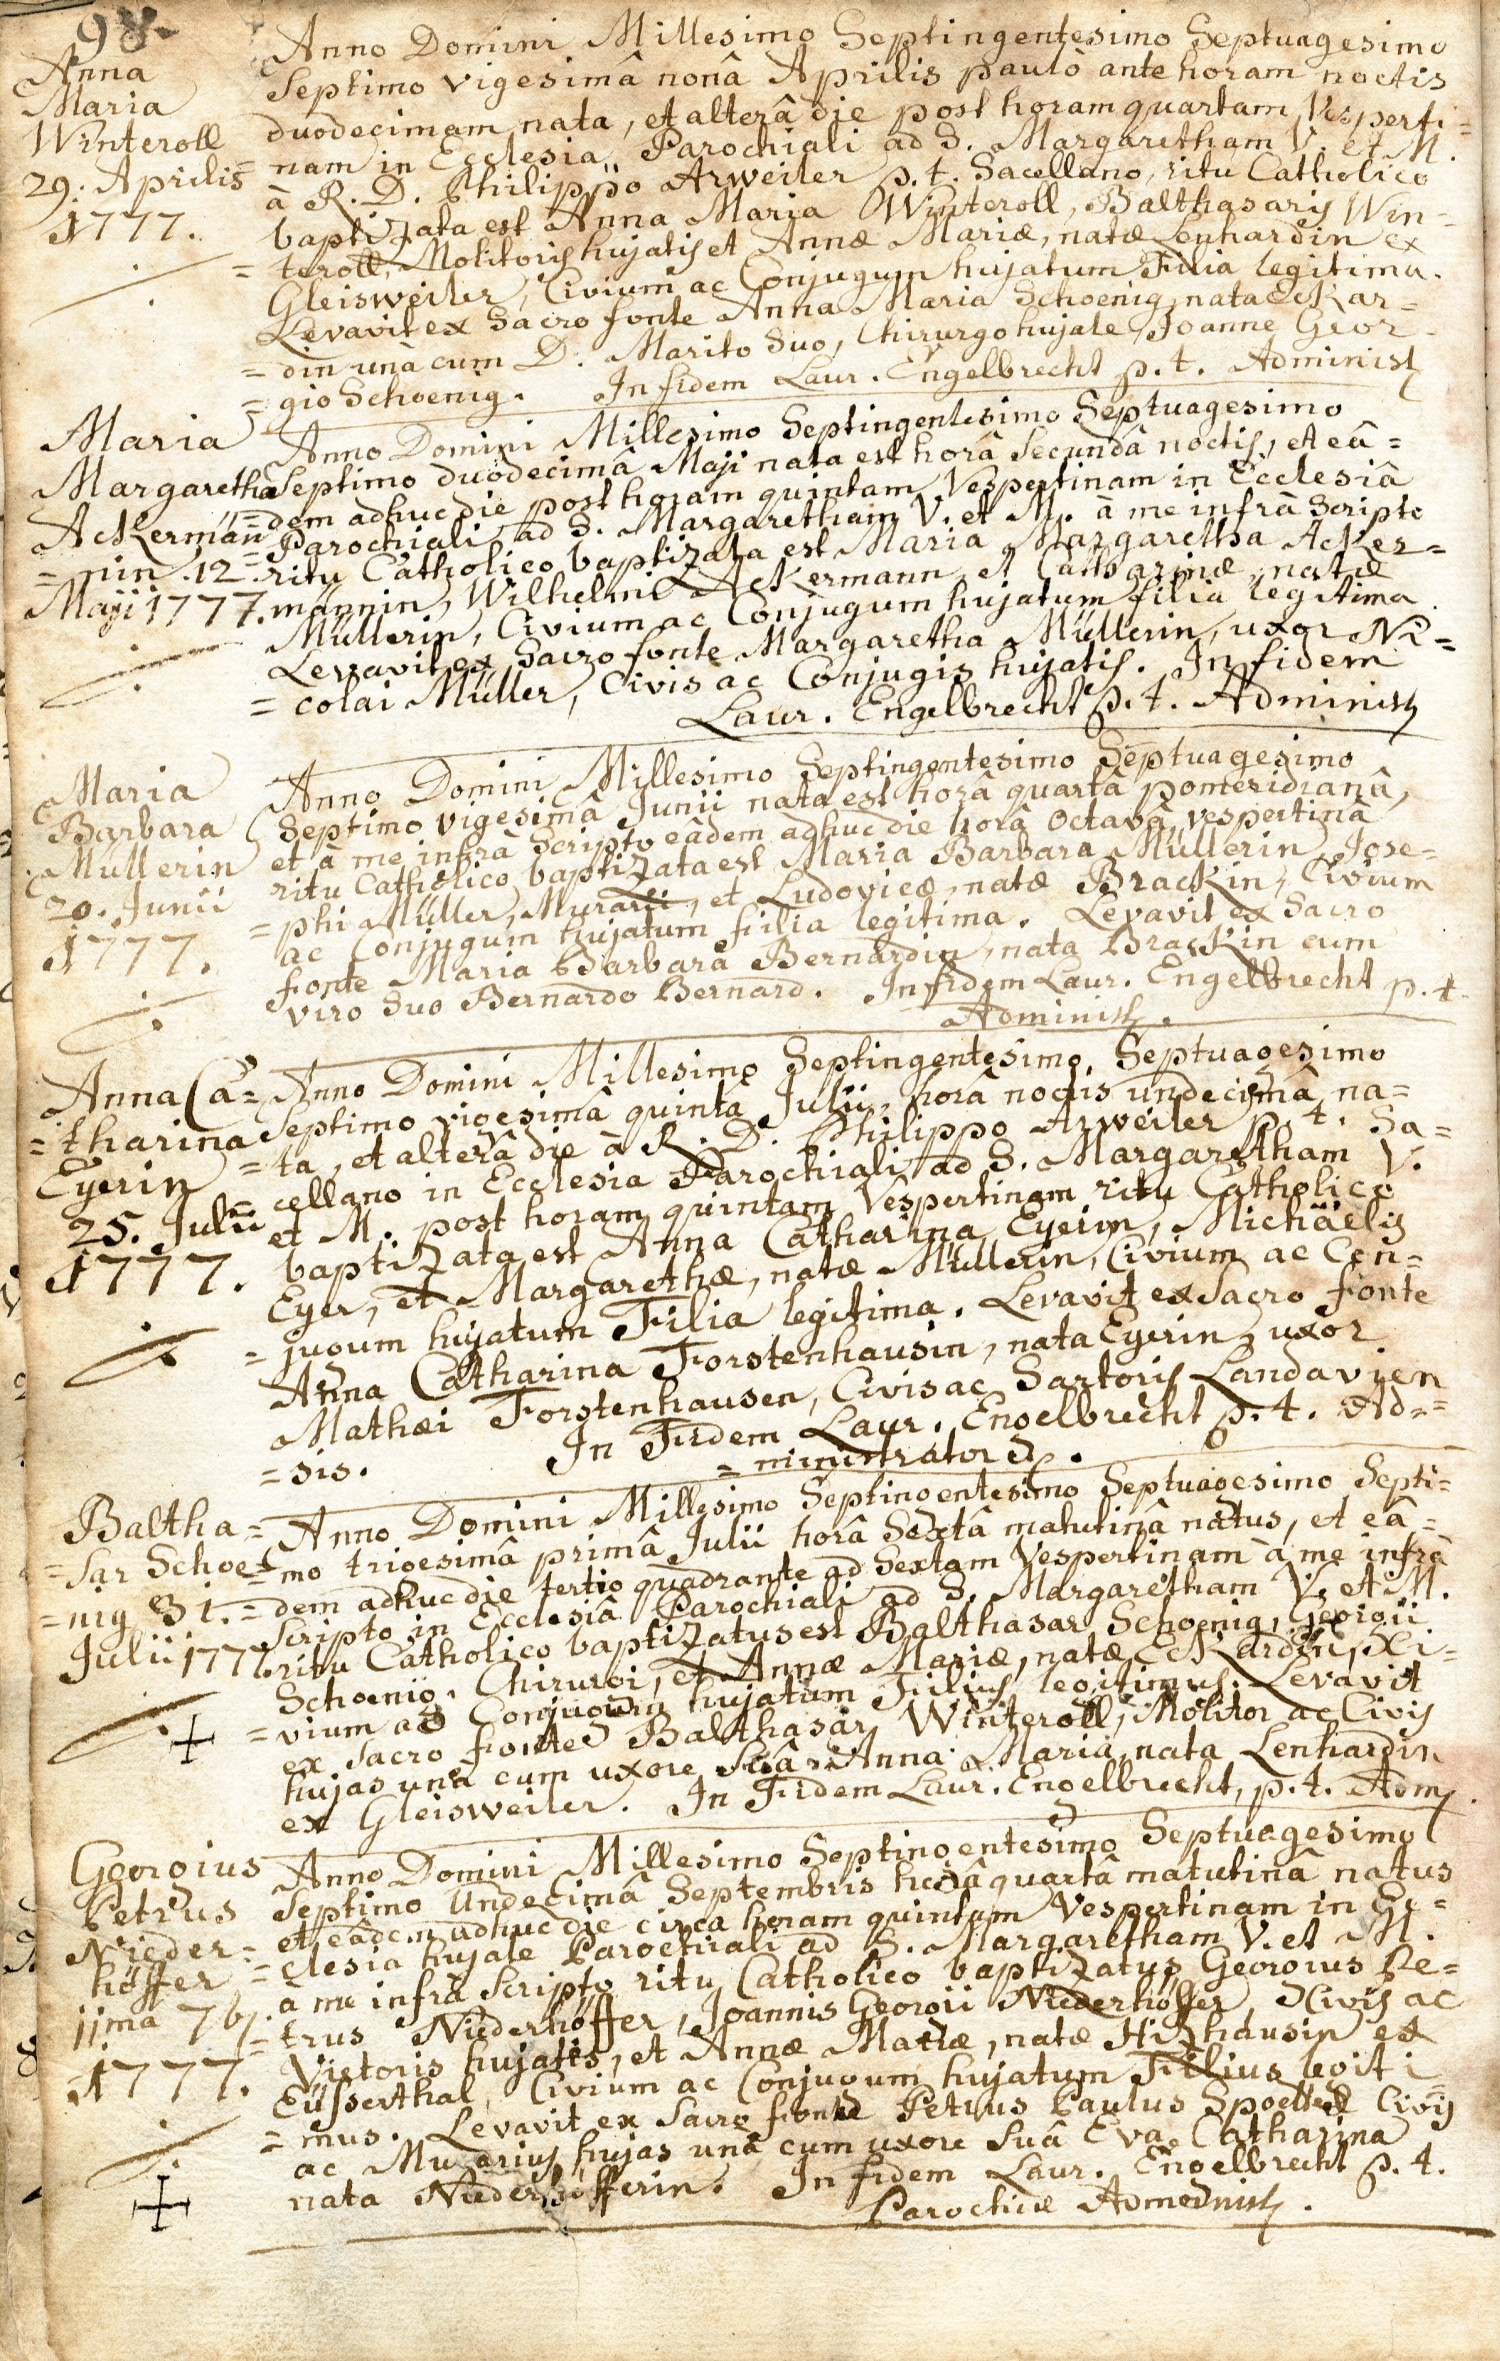 98.
Anna
Maria
Winteroll
29. Aprilis
1777.
Anno Domini Millesimo Septingentesimo Septuagesimo
Septimo vigesimâ nonâ Aprilis paulò ante horam noctis
duodecimam nata, et alterâ die post horam quartam Vesperti=
nam in Ecclesia Parochiali ad S. Margaretham V. et M.
à R. D. Philippo Arweiler p. t. Sacellano, ritu Catholico
baptizata est Anna Maria Winteroll, Balthasaris Win=
= teroll, Molitoris hujatis et Annæ Mariæ, natæ Lenhardin ex
Gleisweiler, Civium ac Conjugum hujatum Filia legitima.
Levavit ex Sacro fonte Anna Maria Schoenig, nata Eckar=
= din unà cum D. Marito suo, Chirurgo hujate, Joanne Geor=
= gio Schoenig. In fidem Laur. Engelbrecht p. t. Administ
Maria
Margaretha
Ackermän=
= nin. 12.
Maji 1777.
Anno Domini Millesimo Septingentesimo Septuagesimo
Septimo duodecimâ Maji nata est horâ Secundâ noctis, et eâ=
= dem adhuc die post horam quintam Vespertinam in Ecclesiâ
Parochiali ad S. Margaretham V. et M. à me infrà Scripto
ritu Catholico baptizata est Maria Margaretha Acker=
männin, Wilhelmi Ackermann et Catharinæ, natæ
Müllerin, Civium ac Conjugum hujatum filia legitima.
Levavit ex Sacro fonte Margaretha Müllerin, uxor Ni=
= colai Müller, Civis ac Conjugis hujatis. In fidem
Laur. Engelbrecht p. t. Administ
Maria
Barbara
Mullerin
20. Junii
1777.
Anno Domini Millesimo Septingentesimo Septuagesimo
Septimo vigesimâ Junii nata est horâ quartâ pomeridianâ,
et à me infrà Scripto eâdem adhuc die horâ Octavâ vespertinâ
ritu Catholico baptizata est Maria Barbara Müllerin, Jose=
= phi Müller, Murarii, et Ludovicæ, natæ Brackin, Civium
ac Conjugum hujatum filia legitima. Levavit ex Sacro
fonte Maria Barbara Bernardin, nata Brackin cum
viro suo Bernardo Bernard. In fidem Laur. Engelbrecht p. t.
Administ.
Anna Ca=
= tharina
Eyerin
25. Julii
1777.
Anno Domini Millesimo Septingentesimo Septuagesimo
Septimo vigesimâ quintâ Julii, horâ noctis undecimâ na=
= ta, et alterâ die à R. D. Philippo Arweiler p. t. Sa=
= cellano in Ecclesia Parochiali ad S. Margaretham V.
et M. post horam quintam Vespertinam ritu Catholico
baptizata est Anna Catharina Eyerin, Michaëlis
Eyer, et Margarethæ, natæ Müllerin, Civium ac Con=
= jugum hujatum Filia legitima. Levavit ex Sacro fonte
Anna Catharina Forstenhausin, nata Eyerin, uxor
Mathæi Forstenhausen, Civis ac Sartoris Landavien
= sis. In Fidem Laur. Engelbrecht p. t. Ad=
= ministrator
Baltha=
= sar Schoe=
= nig 31.
Julii 1777.
Anno Domini Millesimo Septingentesimo Septuagesimo Septi=
= mo trigesimâ primâ Julii horâ Sextâ matutinâ natus, et eâ=
= dem adhuc die tertio quadrante ad Sextam Vespertinam à me infrà
Scripto in Ecclesiâ Parochiali ad S. Margaretham V. et M.
ritu Catholico baptizatus est Balthasar Schoenig, Georgii
Schoenig, Chirurgi, et Annæ Mariæ, natæ Eckardin, Ci=
= vium ac Conjugum hujatum Filius legitimus. Levavit
ex Sacro fonte Balthasar Winteroll, Molitor ac Civis
hujas unà cum uxore suâ Anna Maria, nata Lenhardin
ex Gleisweiler. In Fidem Laur. Engelbrecht, p. t. Adm.
Georgius
Petrus
Nieder=
höffer
11ma 7b.
1777.
Anno Domini Millesimo Septingentesimo Septuagesimo
Septimo Undecimâ Septembris horâ quartâ matutinâ natus
et eâdem adhuc die circa horam quintam Vespertinam in Ec=
= clesia hujate Parochiali ad S. Margaretham V. et M.
à me infrà Scripto ritu Catholico baptizatus Georgius Pe=
= trus Niederhöffer, Joannis Georgii Niederhöffer, Civis ac
Vietoris hujatis, et Annæ Mariæ, natæ Hizhausin ex
Eusserthal, Civium ac Conjugum hujatum Filius legiti
= mus. Levavit ex Sacro fonte Petrus Paulus Civis
ac Murarius hujas unâ cum uxore suâ Eva Catharina
nata Niederhöfferin. In fidem Laur. Engelbrecht p. t.
Parochiæ Administ.